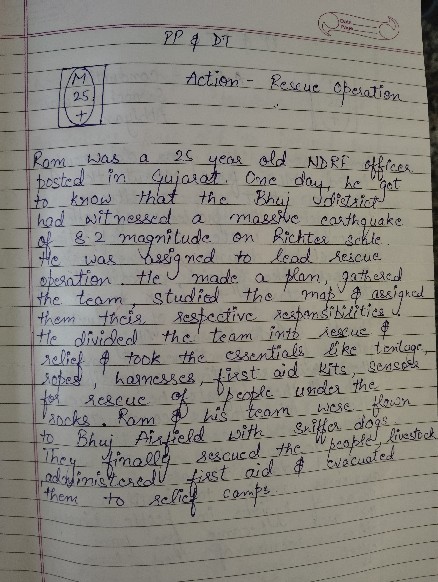 PP & DT
M
25
+
Action - Rescue Operation
Ram was a 25 year old NDRF officer
posted in Gujarat. One day, he got
to know that the Bhuj district
had witnessed a massive earthquake
of 8.2 magnitude on Richter scale.
He was assigned to lead rescue
operation. He made a plan, gathered
the team, studied the map & assigned
them their respective responsibilities.
He divided the team into rescue &
relief & took the essentials like tentage,
ropes, harnesses, first aid kits, sensors
for rescue of people under the
rocks. Ram & his team were flown
to Bhuj Airfield with sniffer dogs.
They finally rescued the people, livestock
administered first aid & evacuated
them to relief camps